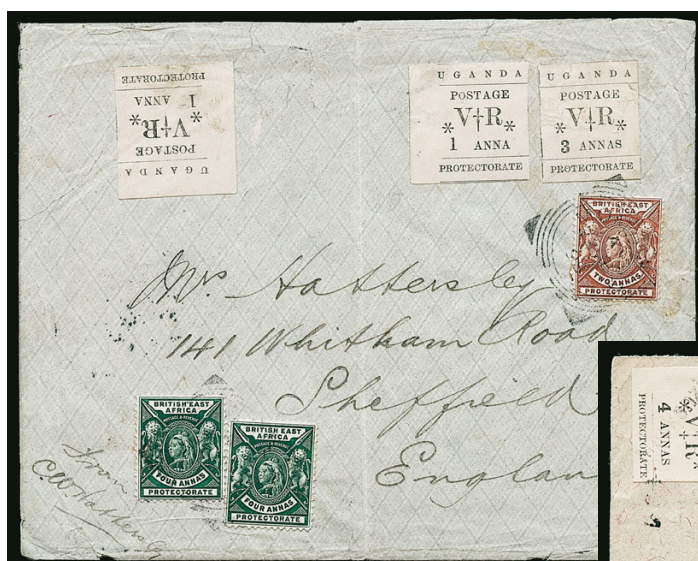 UGANDA
POSTAGE
V†R
* 1 ANNA *
PROTECTORATE
UGANDA
POSTAGE
* V†R *
1 ANNA
PROTECTORATE
UGANDA
POSTAGE
* V†R *
3 ANNAS
PROTECTORATE
BRITISH EAST
AFRICA
POSTAGE & REVENUE
TWO ANNAS
PROTECTORATE
Mrs Hattersley
141 Whitham Road
Sheffield
England
BRITISH EAST
AFRICA
POSTAGE & REVENUE
FOUR ANNAS
PROTECTORATE
BRITISH EAST
AFRICA
POSTAGE & REVENUE
FOUR ANNAS
PROTECTORATE
from
C W Hattersley
* V†R
4 ANNAS
PROTECTORATE